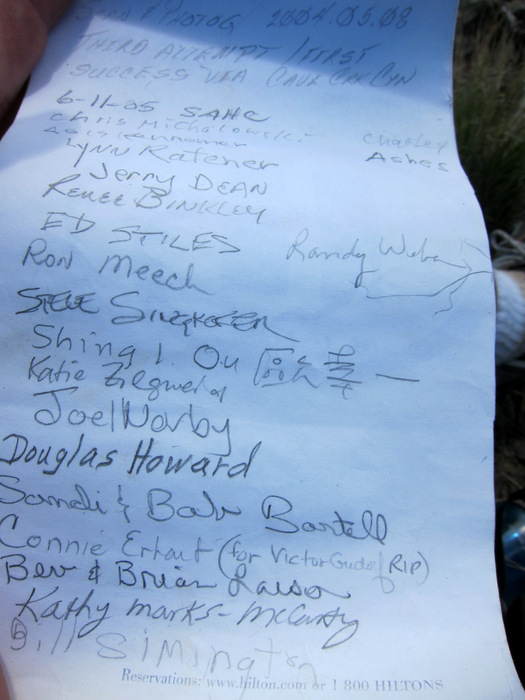 & PHOTOG 2004.05.08
THIRD ATTEMPT / FIRST
SUCCESS VIA
6-11-05 SAHC
Chris Michalowski Charley
Ashes
LYNN Ratener
Jerry DEAN
RENEE BINKLEY
ED STILES Randy Weber
RON Meech
STEVE SINGKOFER
Shing I. Ou 歐 一
Katie
Joel Norby
Douglas Howard
Sandi & Bab Bartell
Connie (for Victor RIP)
Bev & Brian Larson
Kathy marks-McCarty
Bill SIMINgton
Reservations: www.hilton.com or 1 800 HILTONS